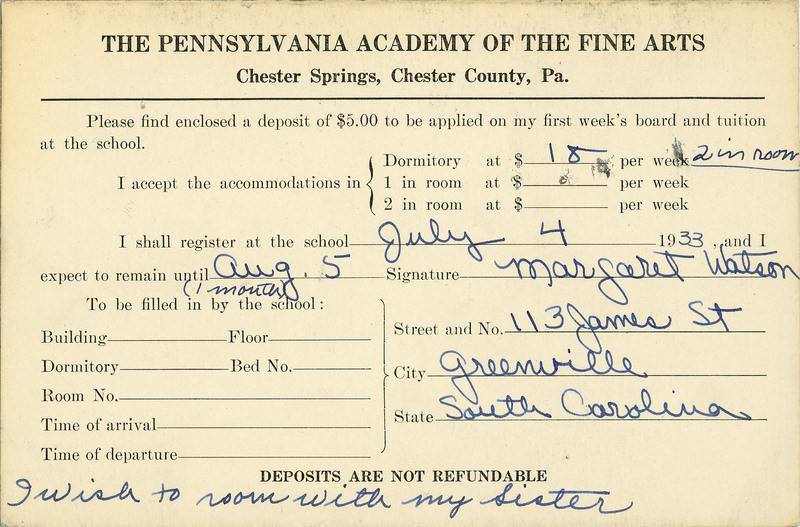 THE PENNSYLVANIA ACADEMY OF THE FINE ARTS
Chester Springs, Chester County, Pa.
Please find enclosed a deposit of $5.00 to be applied on my first week's board and tuition
at the school.
I accept the accommodations in
Dormitory at $ 18 per week 2 in room
1 in room at $ per week
2 in room at $ per week
I shall register at the school July 4 1933, and I
expect to remain until Aug. 5 Signature Margaret Watson
(1 month)
To be filled in by the school:
Building Floor
Dormitory Bed No.
Room No.
Time of arrival
Time of departure
Street and No. 113 James St
City Greenville
State South Carolina
DEPOSITS ARE NOT REFUNDABLE
I wish to room with my sister